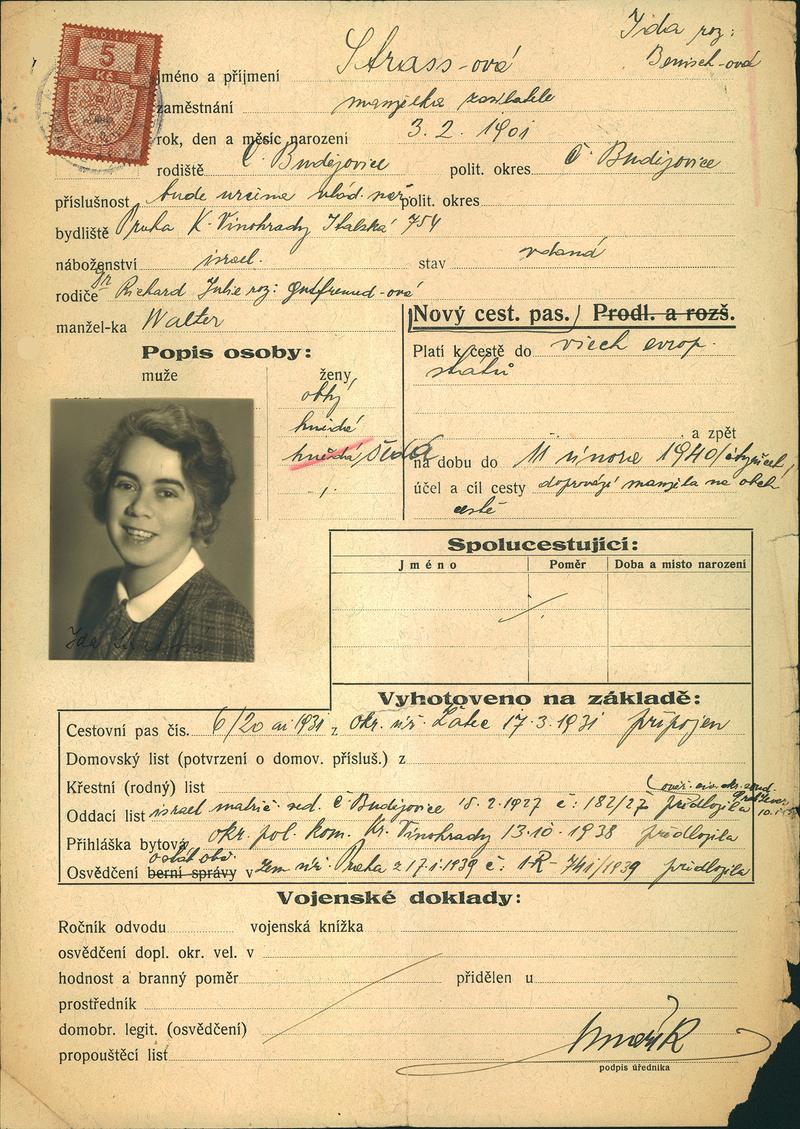 Ida roz:
Strass-ová Benisch-ová
5
Kč
jméno a příjmení
zaměstnání manželka
rok, den a měsíc narození 3. 2. 1901
rodiště Č. Budějovice polit. okres Č. Budějovice
příslušnost bude určena vlád. nař. polit. okres
bydliště Praha K. Vinohrady Italská 754
náboženství israel. stav vdaná
rodiče Richard Julie roz: Gutfreund-ová
manžel-ka Walter
Nový cest. pas. Prodl. a rozš.
Popis osoby:
Platí k cestě do všech evrop.
států
muže ženy
oblý
hnědé
hnědá šedá
a zpět
na dobu do 11 února 1940
účel a cíl cesty doprovází manžela na obch
cestě
Spolucestující:
Jméno Poměr Doba a místo narození
Ida
Vyhotoveno na základě:
Cestovní pas čís. 6/20 ai 1931 z okr. úř. Žatec 17.3.1931 připojen
Domovský list (potvrzení o domov. přísluš.) z
Křestní (rodný) list
Oddací list israel matrič. ved. Č Budějovice 15. 2. 1927 č: 182/27 předložila
Přihláška bytová okr. pol. kom. Kr. Vinohrady 13.10.1938 předložila
Osvědčení berní správy v zem úř. Praha z 17.1.1939 č: 1-R- 741/1939 předložila
Vojenské doklady:
Ročník odvodu vojenská knížka
osvědčení dopl. okr. vel. v
hodnost a branný poměr přidělen u
prostředník
domobr. legit. (osvědčení)
propouštěcí list
podpis úředníka